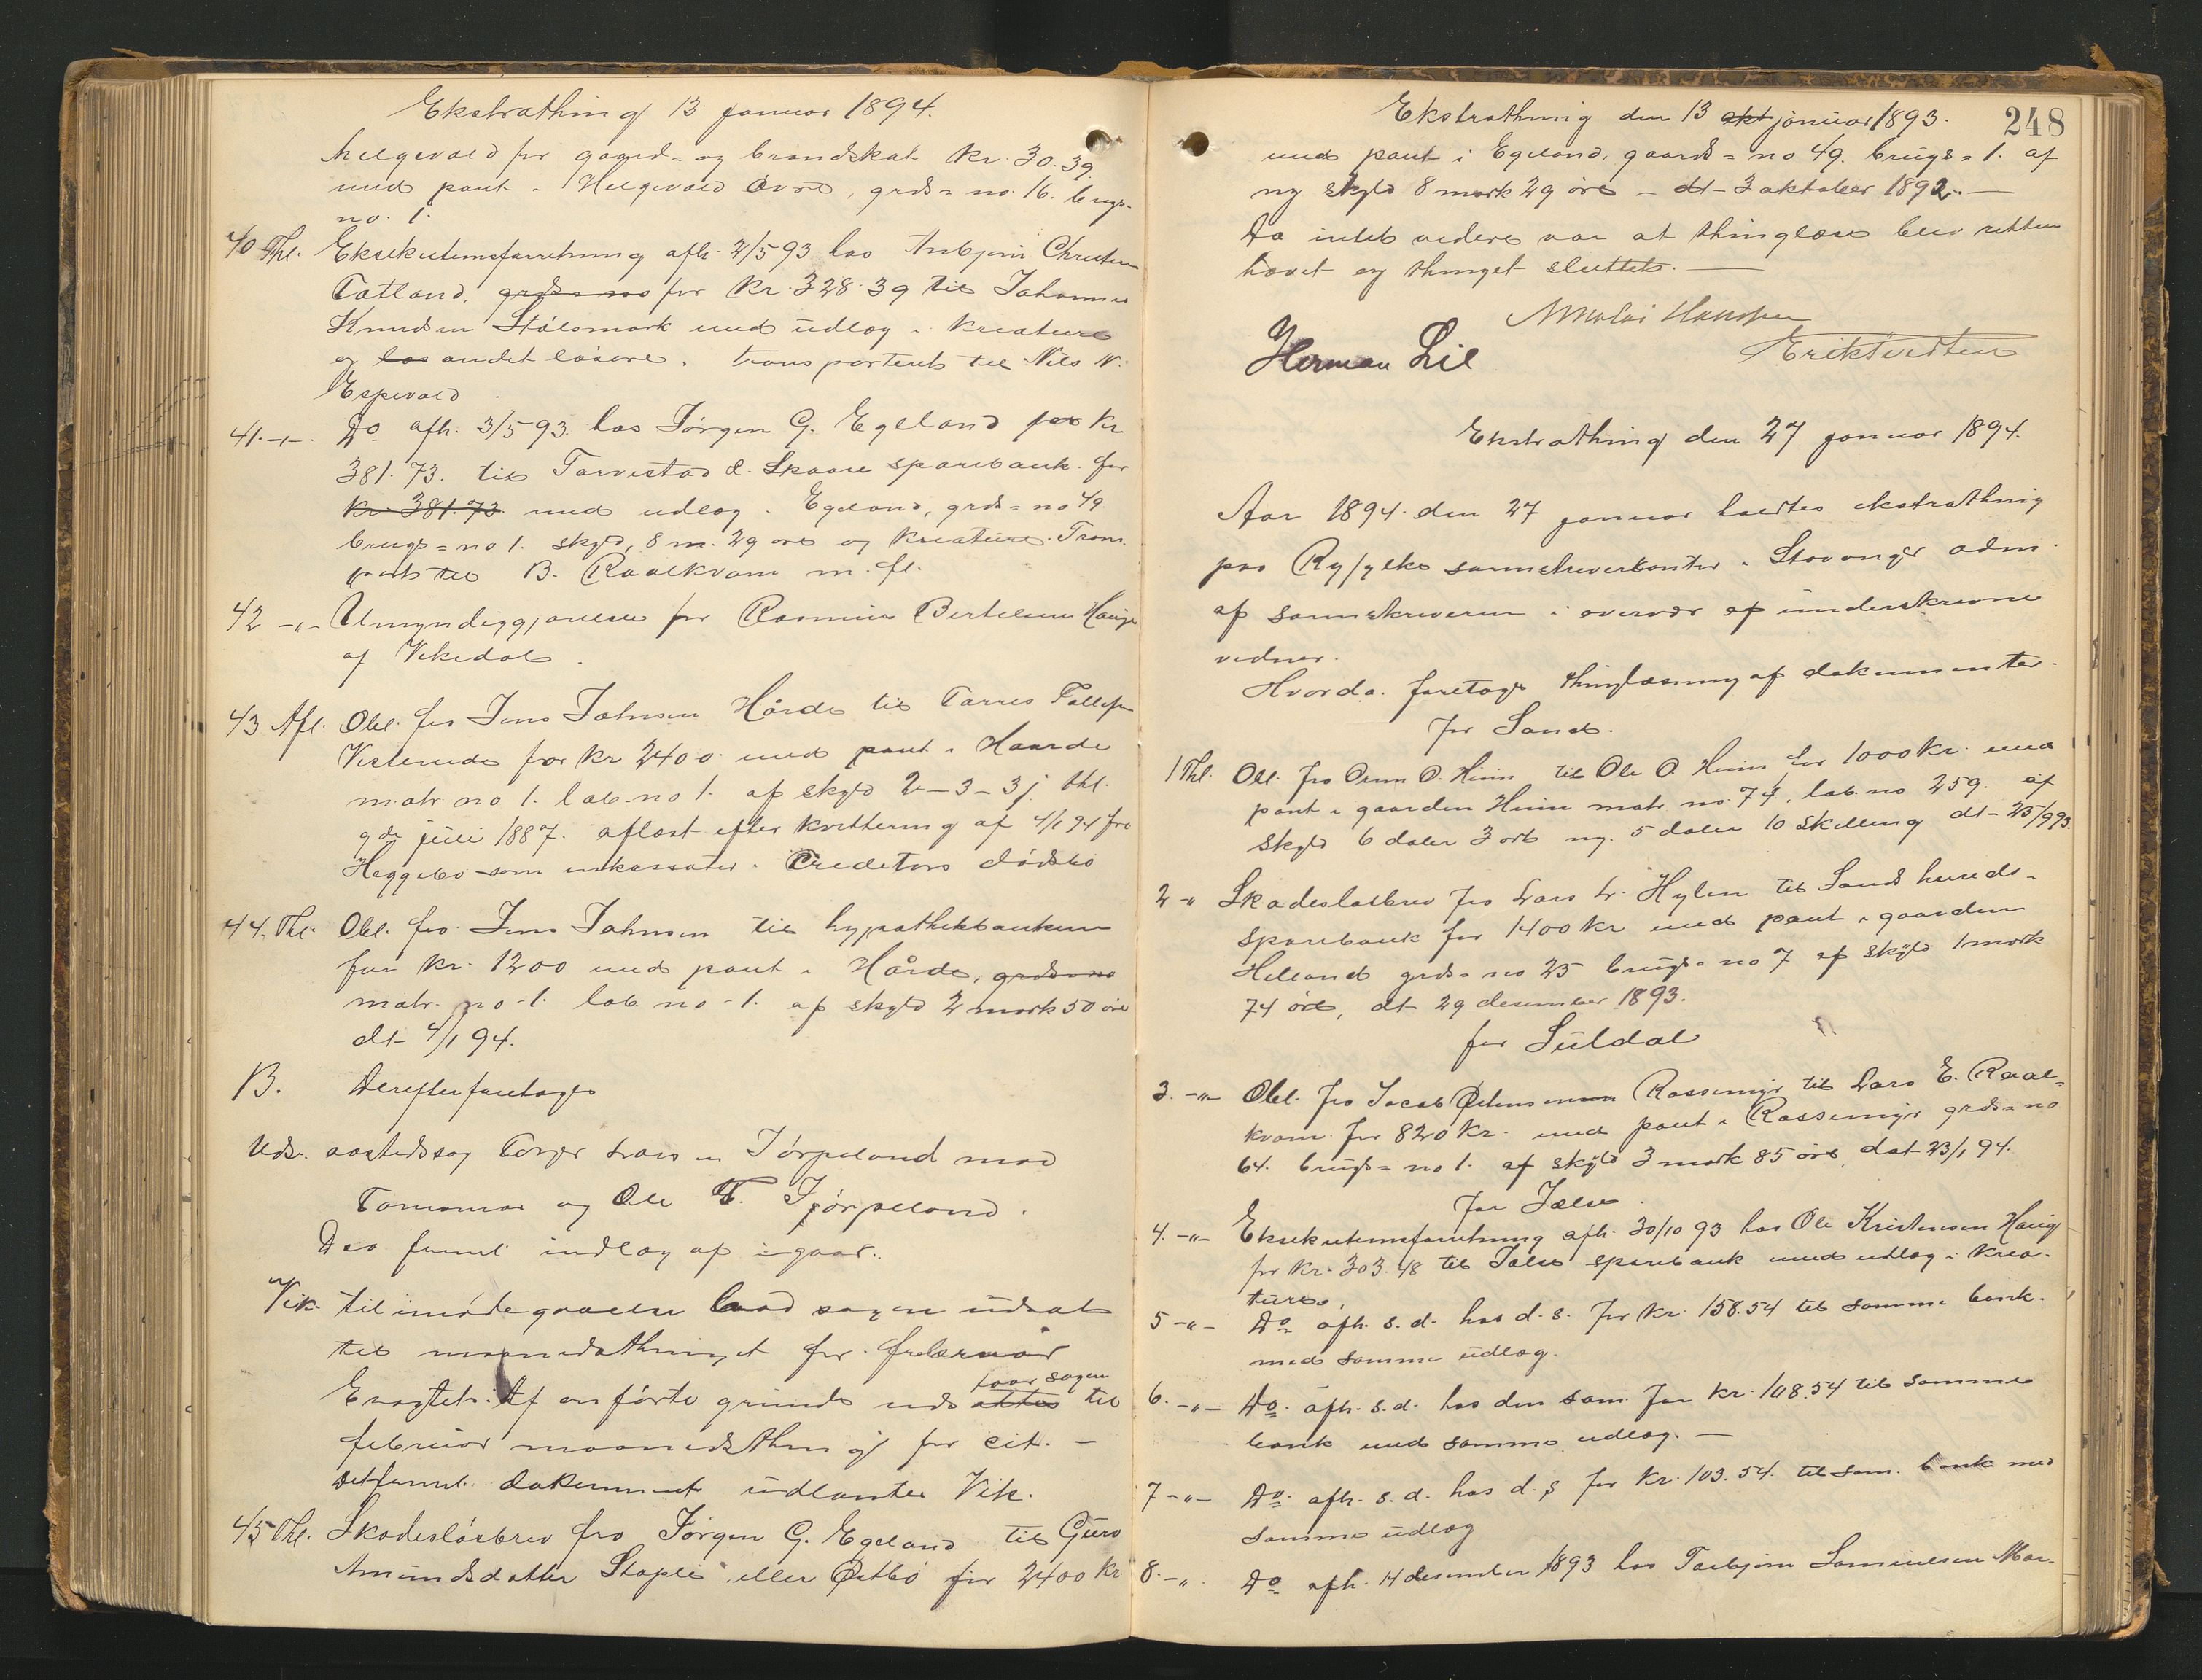 Ekstrathing 13 januar 1894.
helgevold for gaard- og brandskat kr. 30.39.
med pant i Helgevold øvre, grds=no. 16. brugs-
no. 1.
40 Thl. Eksekutionsforretning afh. 2/5 93 hos Anbjørn Christen
Tatland, grds=no for Kr. 328.39 til Johannes
Knudsen Stålesmark med udlæg i kreature
og løs andet løsøre. transporteret til Nils N.
Espevold.
41.-"-. Do afh. 3/5 93 hos Jørgen G. Egeland for kr
381.73. til Torvestad & Skaare sparebank. for
kr 381.73 med udlæg i Egeland, grds=no 49
brugs=no 1. skyld, 8 m. 29 øre og kreature. Trans-
port til B. Raalkvam m. fl.
42 -"- Umyndiggjørelse for Rasmus Bertelsen Hauge
af Vikedal.
43 Afl. Obl. fra Jens Johnsen Hårde til Torres Tollefsen
for kr 2400 med pant i Haarde
matr no 1. løb-no 1. af skyld 2-3-3 j. thl.
9de juli 1887. aflæst efter kvittering af 4/1 94 fra
Heggebø som inkassator i Creditors dødsbo
44. Thl. Obl. fra Jens Johnsen til hypothekbanken
for kr. 1200 med pant i Hårde, grds=no
matr. no-1. løb no-1. af skyld 2 mark 50 øre
dt 4/1 94.
B. Derefter foretoges
Uds. aastedssag Torger Larsen Jørpeland mod
og Ole T. Jørpeland.
Der freml. indlæg af igaar.
Vik. til imødegaaelse bad sagen udsat
til maanedsthinget for februar
Eragtet: Af anførte grunde uds attes staar sagen til
februar maanedsthing for cit. -
Det freml. dokument udlaantes Vik.
45 Thl. Skadesløsbrev fra Jørgen G. Egeland til Guro
Amundsdatter Stople eller Østbø for 2400 kr
Ekstrathing den 13 okt januar 1893. 248
med pant i Egeland, gaards=no 49. brugs=1. af
ny skyld 8 mark 29 øre - dt- 3 oktober 1892. -
Da intet videre var at thinglæse blev retten
hævet og thinget sluttet. -
Nikolai Hanssen
Herman Lie Erik Tvedten
Ekstrathing den 27 januar 1894.
Aar 1894. den 27 januar holdtes ekstrathing
paa Ryfylke sorenskriverkontor i Stavanger adm.
af sorenskriveren i overvær af underskrevne
vidner.
Hvorda. foretoges thinglæsning af dokumenter.
for Sand.
1 Thl. Obl. fra Orm O. Hiim til Ole O. Hiim for 1000 kr. med
pant i gaarden Hiim matr no. 74, løb. no 259. af
skyld 6 daler 3 ort ny. 5 daler 10 skilling dt- 25/9 93.
2 -" Skadesløsbrev fra Lars L. Hylen til Sands hereds-
sparebank for 1400 kr med pant i gaarden
Helland grds=no 25 brugs=no 7 af skyld 1 mark
74 øre, dt 29 desember 1893.
for Suldal
3. -"- Obl. fra Jacob Rossemyr til Lars E. Raal-
kvam for 820 kr. med pant i Rossemyr grds=no
64. brugs=no 1. af skyld 3 mark 85 øre, dat 23/1 94.
for Jælse.
4. -"- Eksekutionsforretning afh. 30/10 93 hos Ole Kristensen Haug
for kr. 303.48 til Jælse sparebank med udlæg i krea-
ture.
5 -"- Do afh. s. d. hos d. s. for kr. 158.54 til samme bank.
med samme udlæg.
6. -"- Do. afh. s. d. hos den sam. for kr. 108.54 til samme
bank med samme udlæg. -
7 -"- Do. afh. s. d. hos d. s for kr. 103.54. til sam. bank med
samme udlæg
8. -". Do afh. 14 desember 1893 hos Torbjørn Samuelsen Mar-